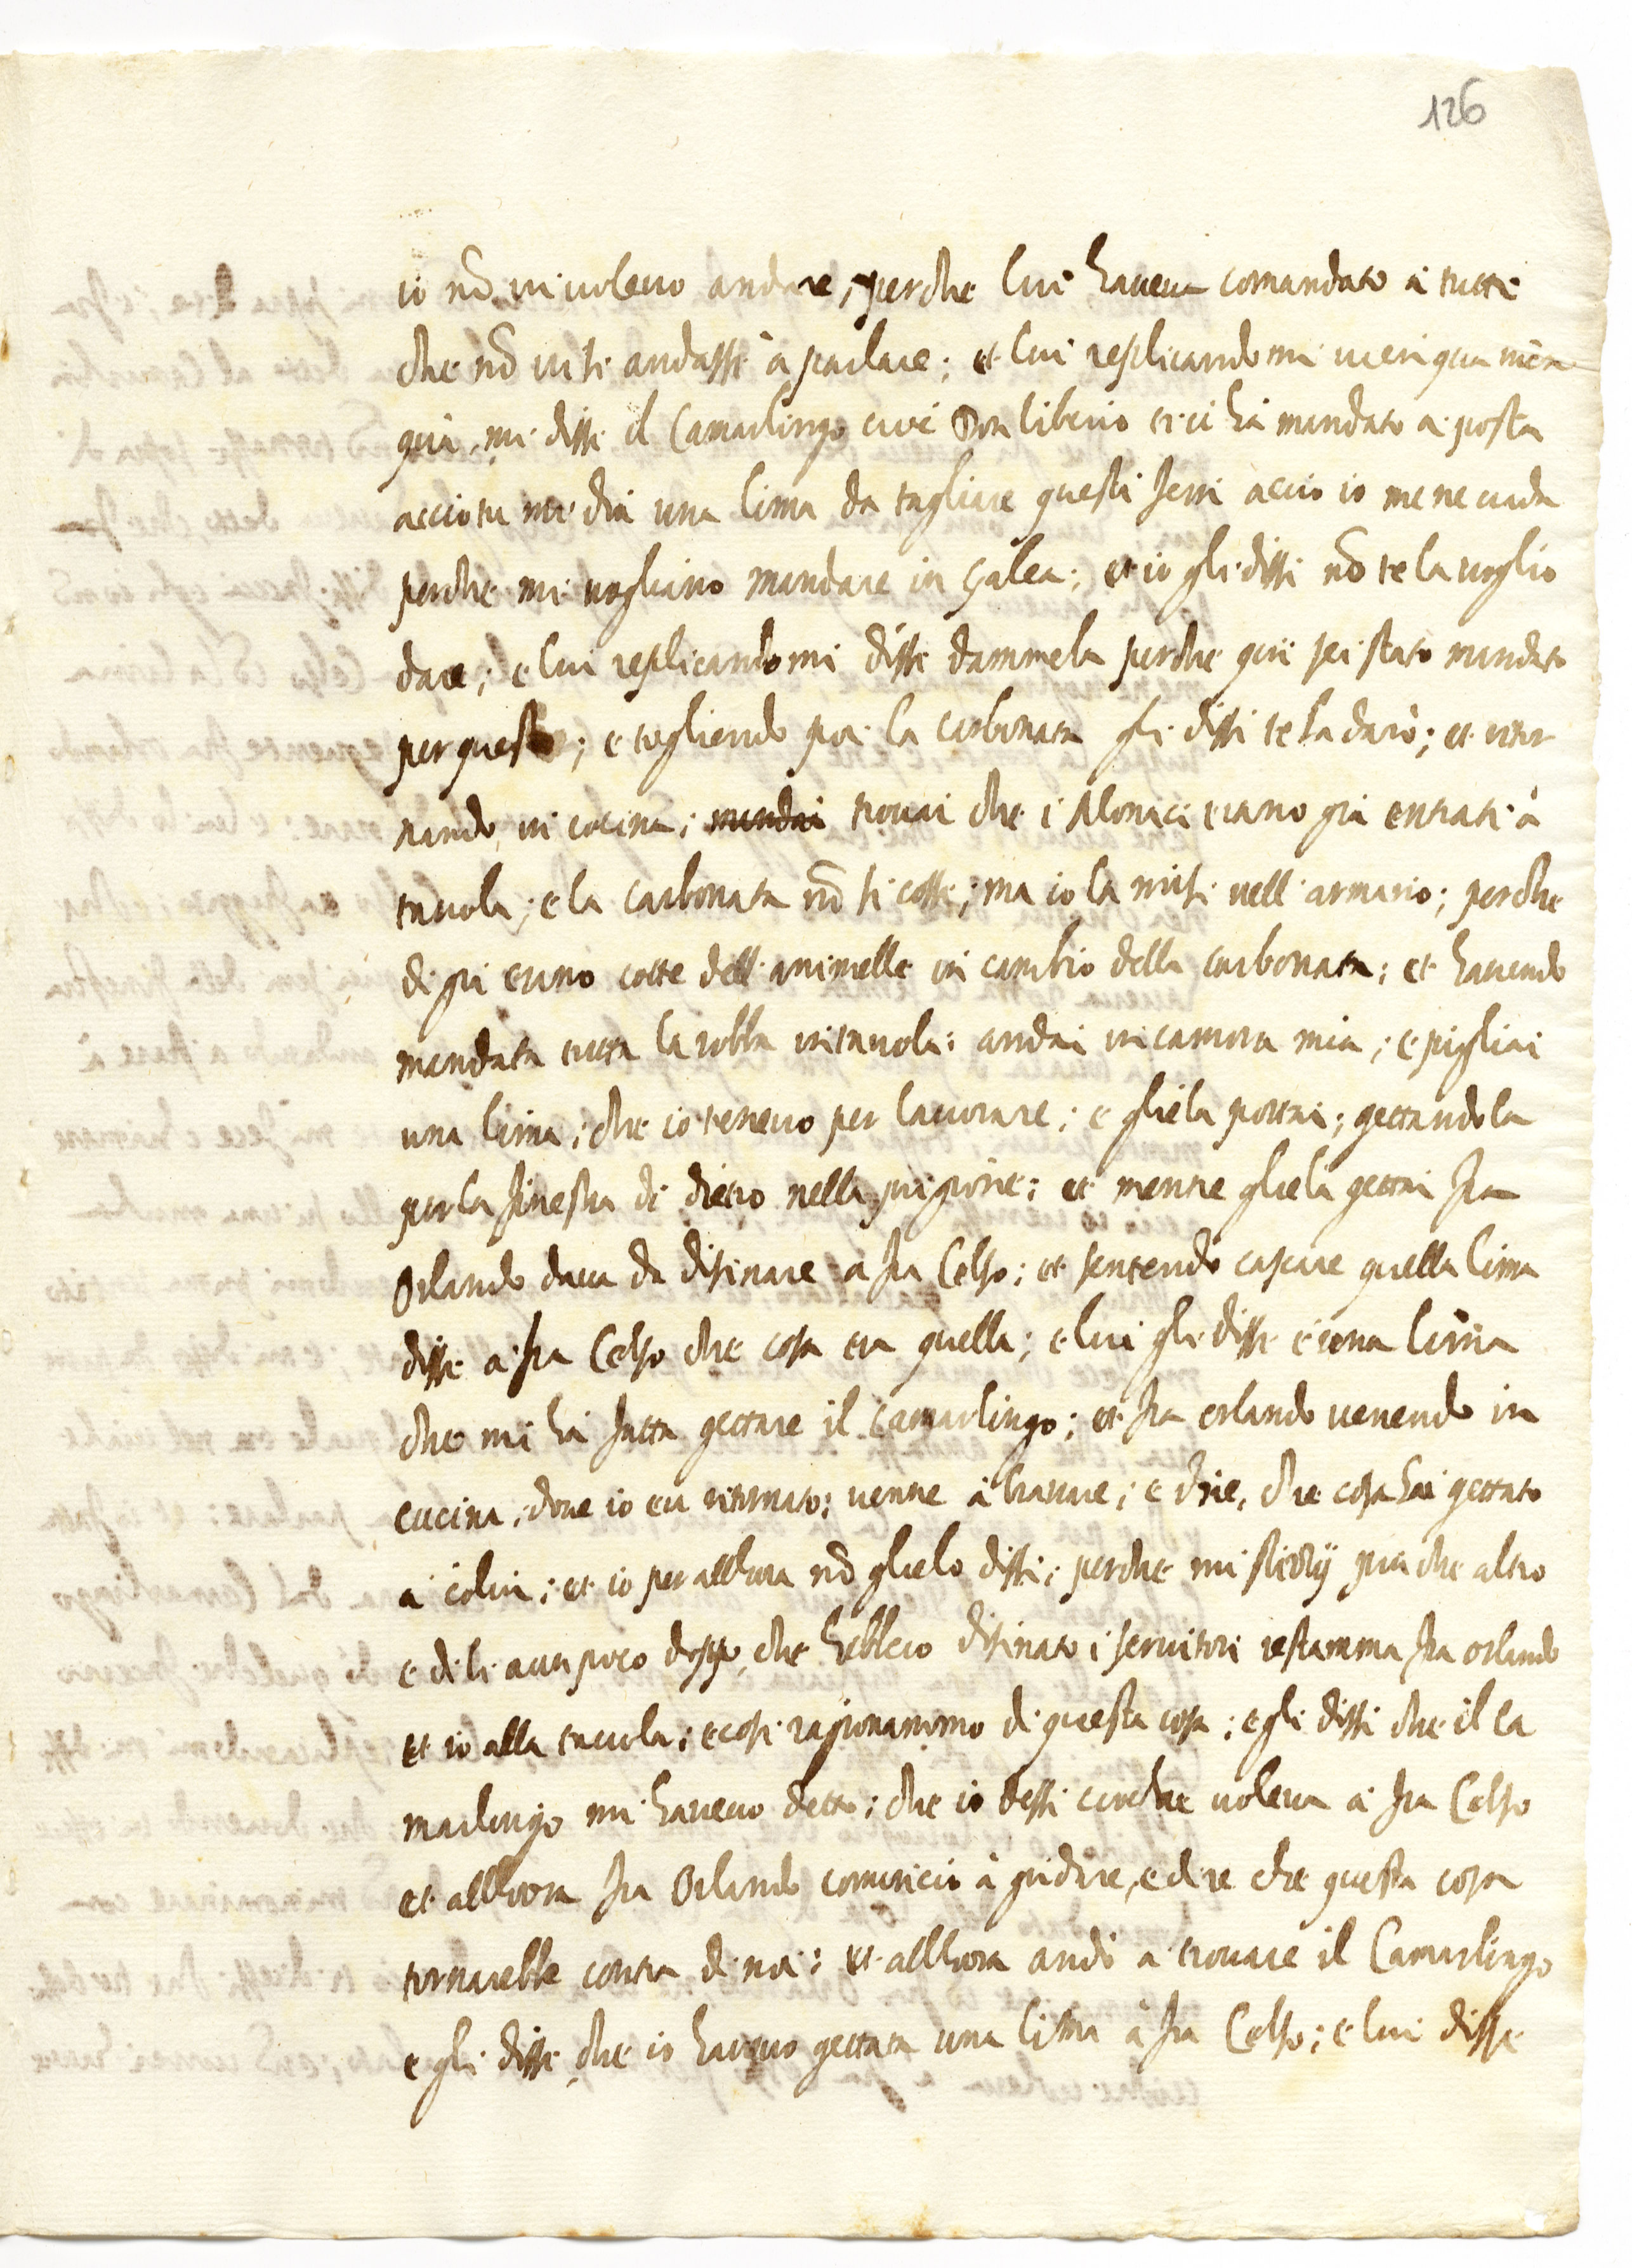 126
io nõ vi volevo andare, perche lui haveva comandato à tutti
che nõ visi andasse à parlare; et lui replicandomi vieni qua vien
quà, mi disse il Camarlingo cioè Don liberio ti ci hà mandato a posta
acciò tu mi dia una lima da tagliare questi ferri acciò io me ne vada
perche mi vogliano mandare in Galea; et io gli dissi nõ te la voglio
dare; e lui replicandomi disse dammela perche qui sei stato mandato
per questo; e togliendo poi la carbonata gli dissi te la darò; et ritor
nando in cocina; mandai trovai che i Monaci erano già entrati à
tavola; e la carbonata nõ si cosse; ma io la missi nell'armario; perche
di già erano cotte dell'animelle in cambio della carbonata; et havendo
mandata tutta la robba in tavola; andai in camora mia; e pigliai
una lima; che io tenevo per lavorare; e gliela portai; gettandola
per la finestra di dietro nella prigione; et mentre gliela gettai fra
Orlando dava da disinare a fra Celso; et sentendo cascare quella lima
disse a fra Celso che cosa era quella; e lui gli disse è una lima
che mi hà fatta gettare il Camarlingo; et fra Orlando venendo in
cucina, dove io era ritornato; venne à bravare; e dire, che cosa hai gettato
à colui; et io per allhora nõ glielo dissi; perche mi più che altro
e di li a un poco doppo, che hebbero disinato i servitori restamma fra Orlando
et io alla tavola; e cosi ragionammo di questa cosa; e gli dissi che il Ca
marlingo mi havevo detto; che io dessi cioche voleva à fra Celso
et allhora fra Orlando comincio à gridare, e dire che questa cosa
tornarebbe contra di noi; et allhora andò a trovare il Camarlingo
e gli disse, che io havevo gettata una lima à fra Celso; e lui disse